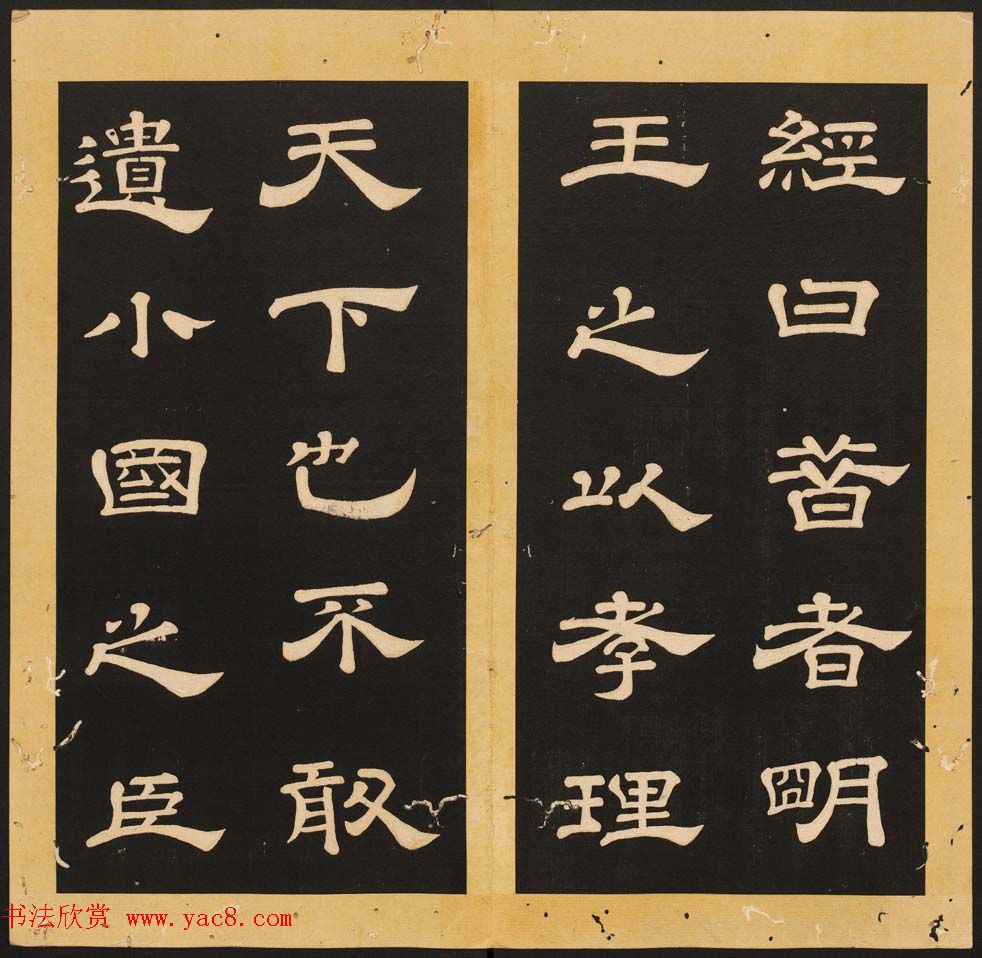 經曰昔者明
王之以孝理
天下也不敢
遺小國之臣
书法欣赏 www.yac8.com